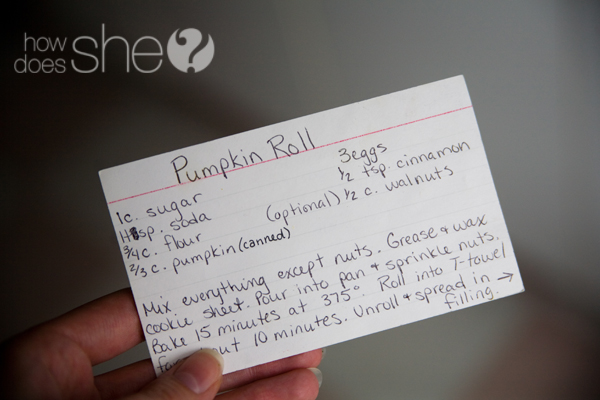 how
does
she?
Pumpkin Roll
1c. sugar
tsp. soda
3/4 c. flour
2/3 c. pumpkin (canned)
3 eggs
1/2 tsp. cinnamon
(optional) 1/2 c. walnuts
Mix everything except nuts. Grease & wax
cookie sheet. Pour into pan & sprinkle nuts.
Bake 15 minutes at 375°. Roll into T-towel
10 minutes. Unroll & spread in →
filling.